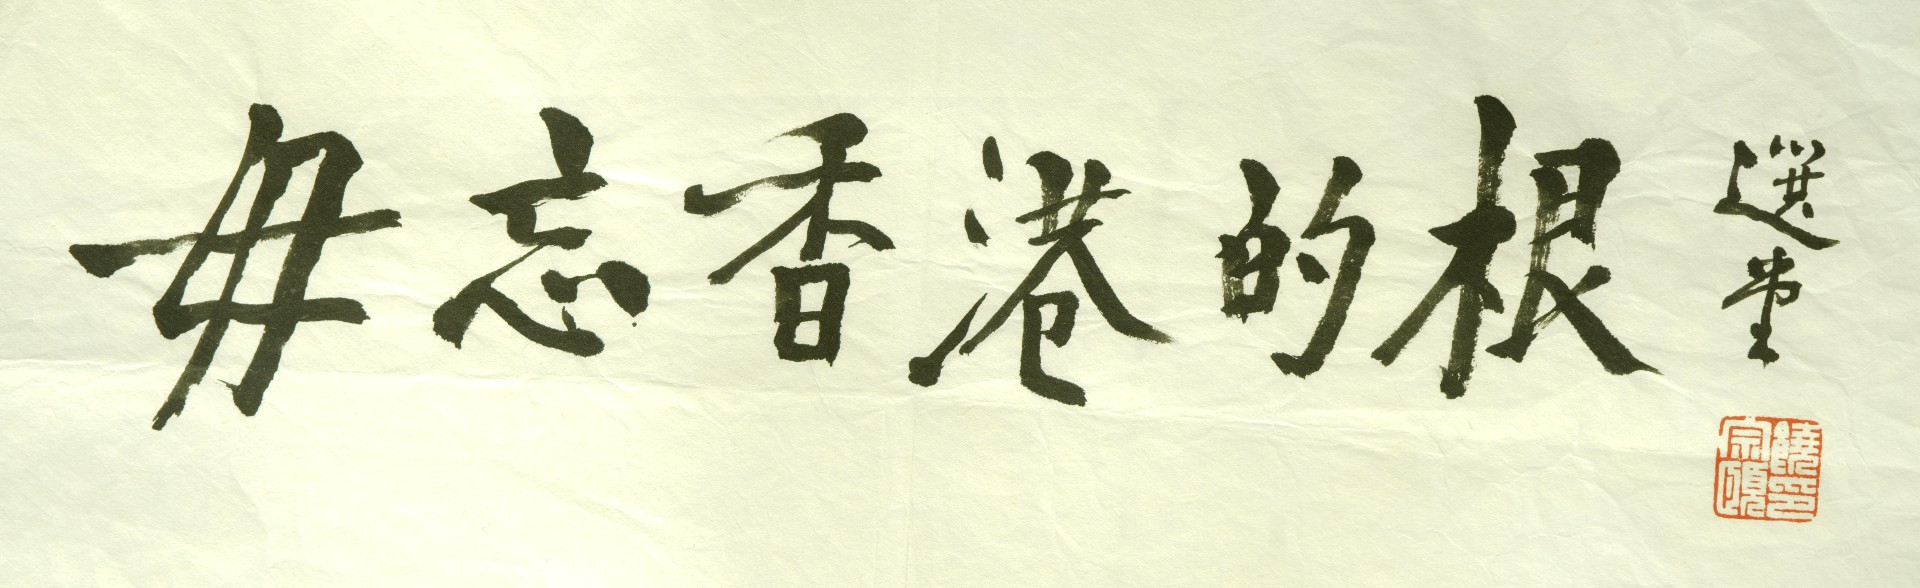 毋忘香港的根
選堂
饒宗頤印